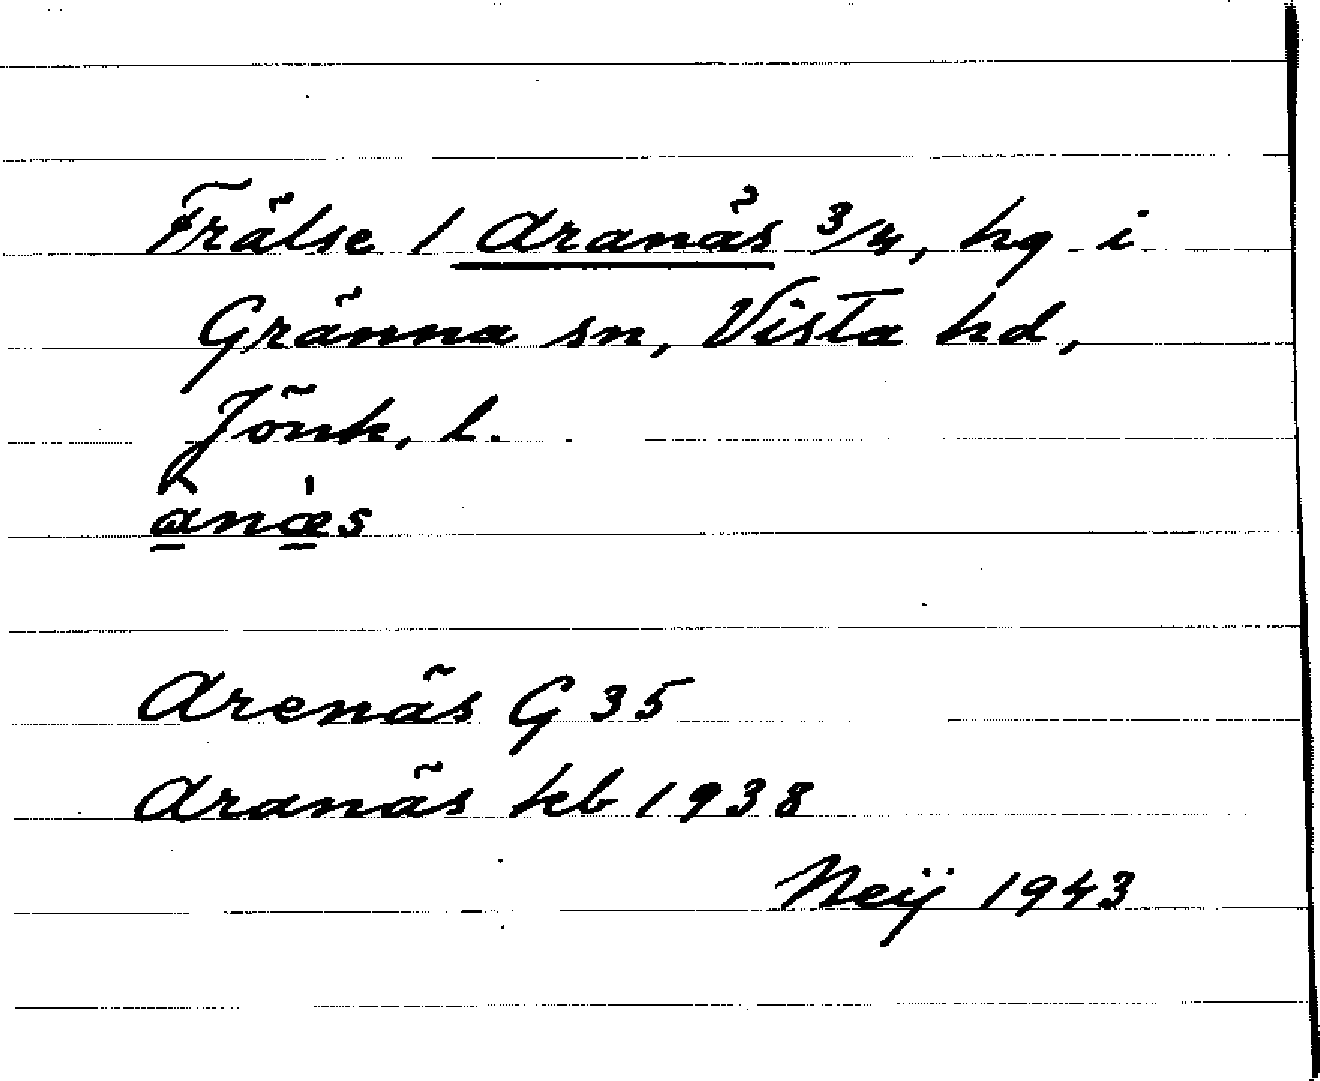 Frälse 1 Aranäs 3/4, hg i
Gränna sn, Vista hd,
Jönk. l.
ànæ̀s
Arenäs G 35
Aranäs kb 1938
Neij 1943